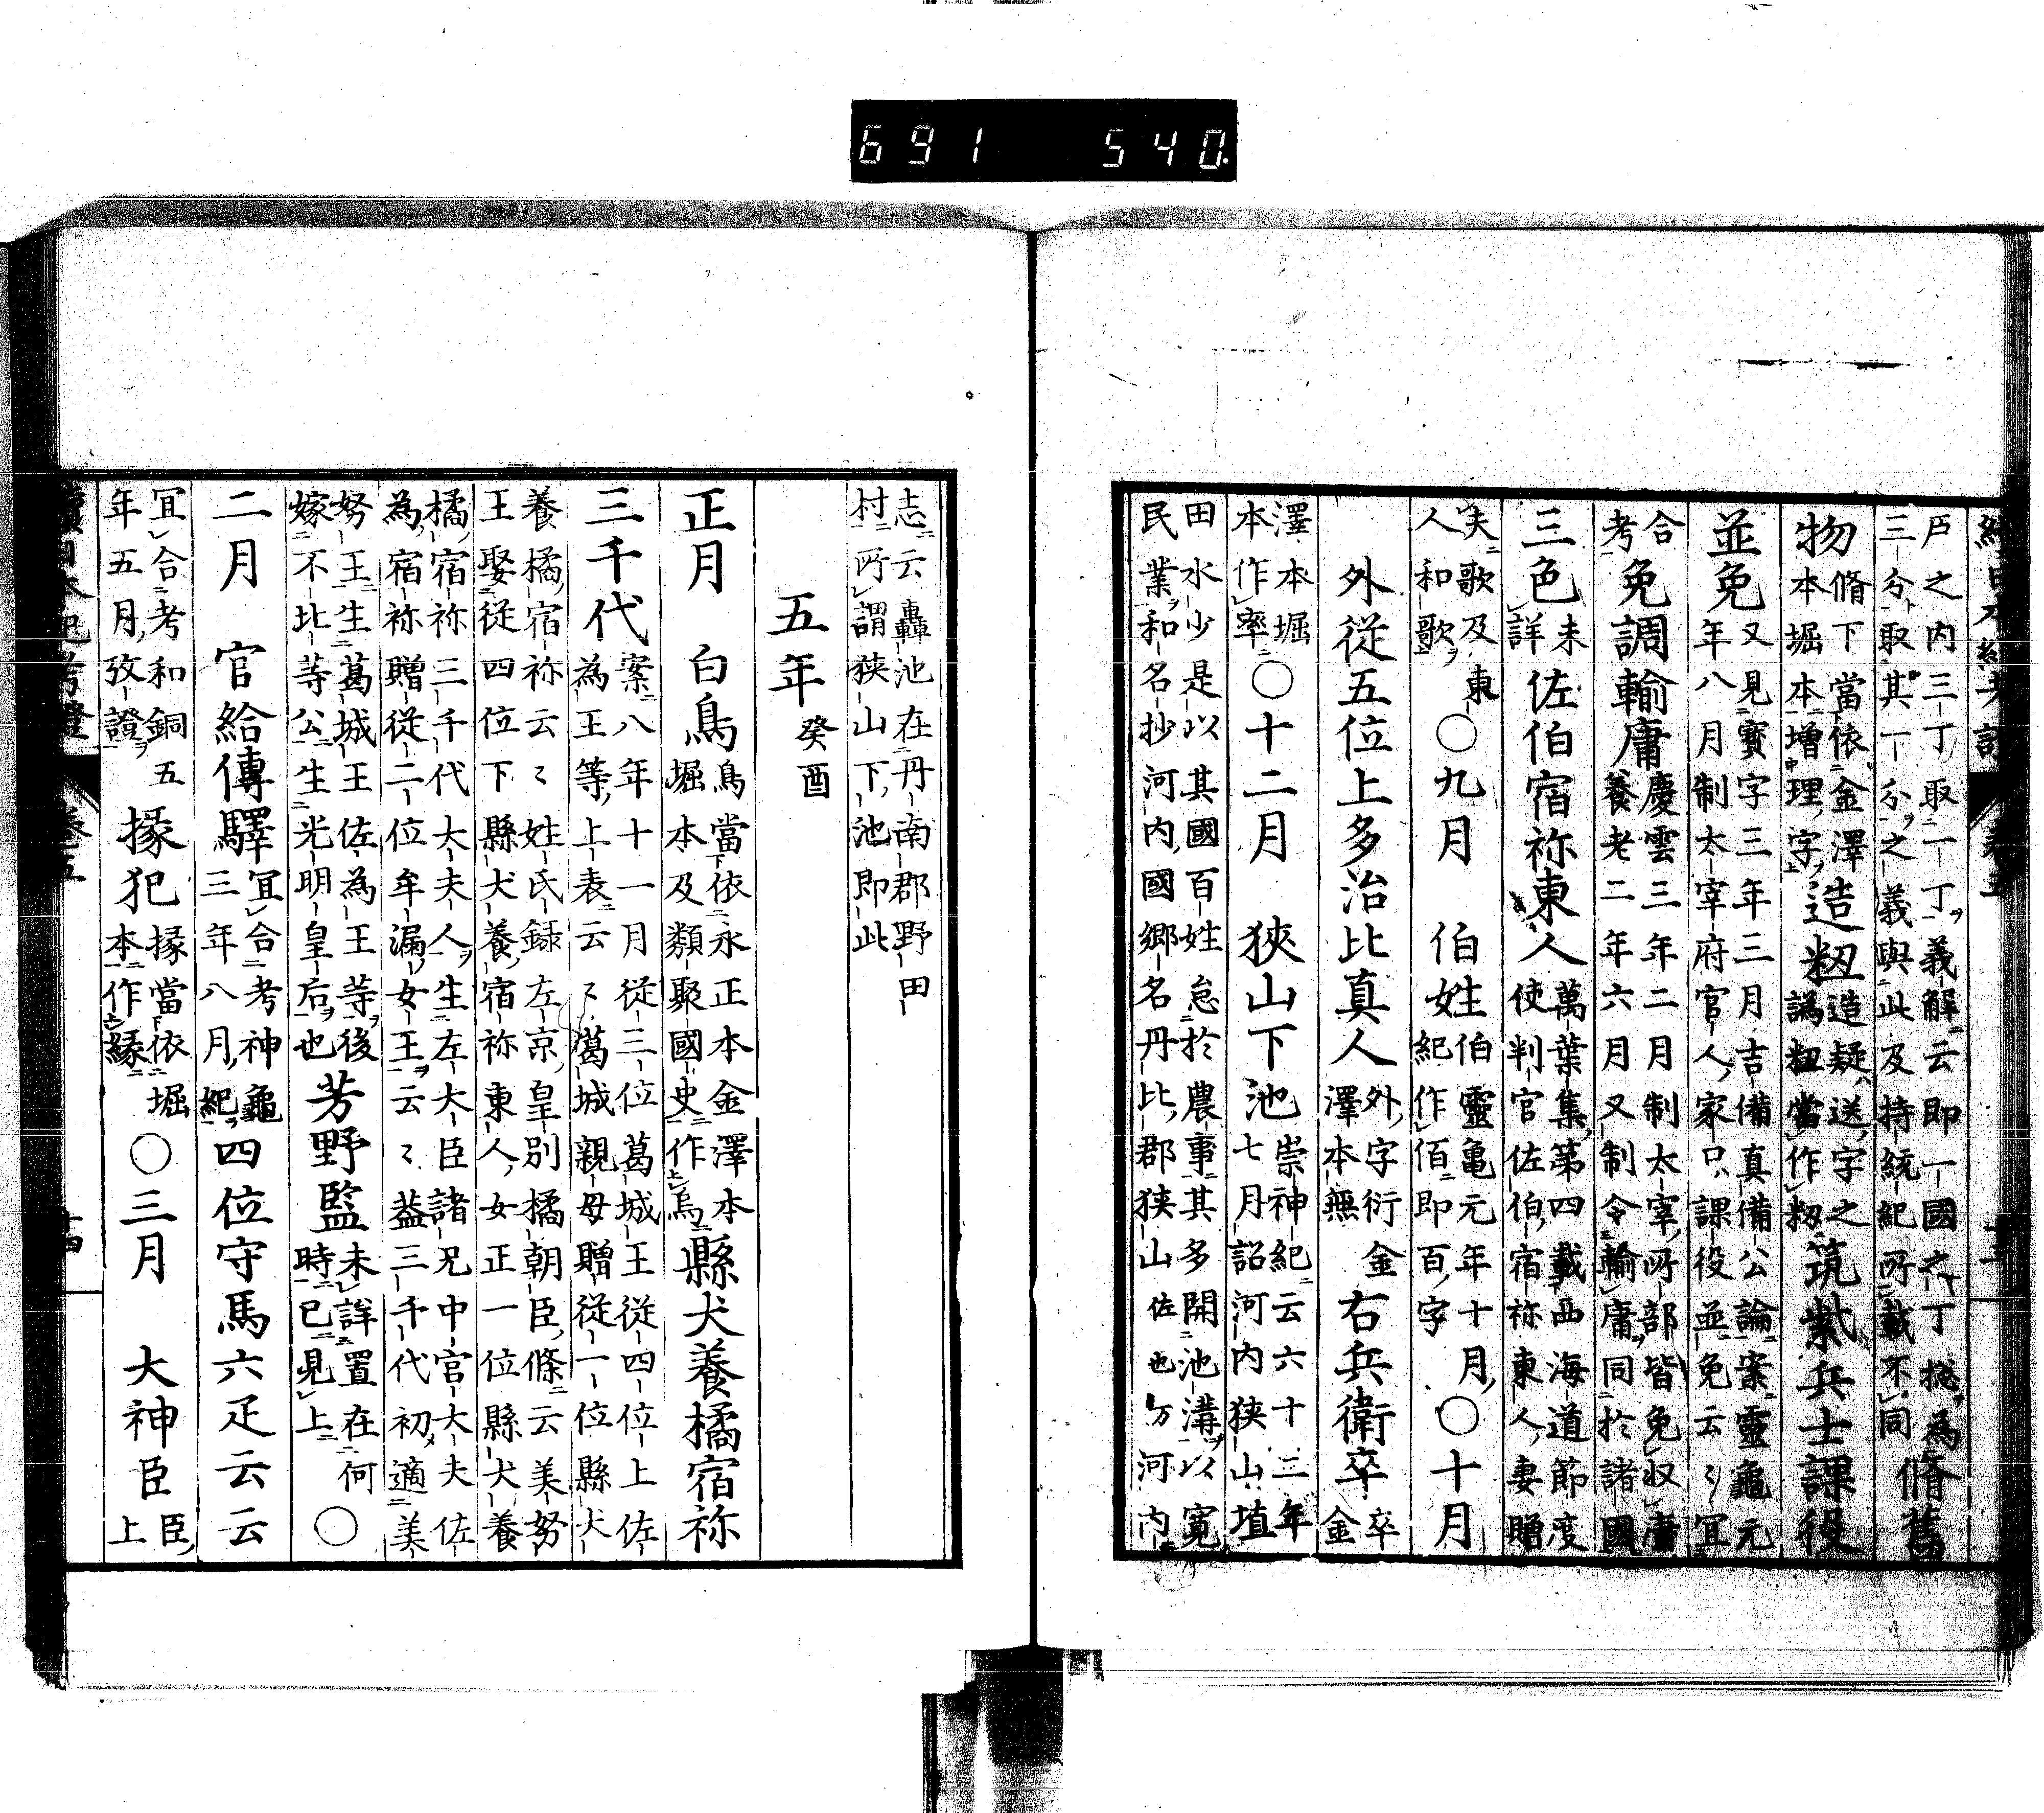 691 540
續日本紀考證 卷五
戸之内三丁取一丁義解云即一國之丁揔為
三分取其一分之義與此及持統紀所載不同
脩舊
物脩下當依金澤
本堀本増理字
造籾造疑送字之
譌籾當作籾
筑紫兵士課役
並免又見寶字三年三月吉備真備公論案靈龜元
年八月制太宰府官人家口課役並免云々宜
合考
免調輸庸慶雲三年二月制太宰所部皆免収庸
養老二年六月又制令輸庸同於諸國
三色未詳
佐伯宿祢東人萬葉集第四載西海道節度
使判官佐伯宿祢東人妻贈
夫歌及東
人和歌
○九月 伯姓伯靈亀元年十月
紀作佰即百字
○十月
外從五位上多治比真人外字衍金
澤本無
右兵衛卒卒金
澤本堀
本作率
○十二月 狹山下池崇神紀云六十二年
七月詔河内狭山埴
田水少是以其國百姓怠於農事其多開池溝以寛
民業和名抄河内國郷名丹比郡狭山佐也万河内
志云轟池在丹南郡野田
村所謂狭山下池即此
五年癸酉
正月 白鳥鳥當依永正本金澤本
堀本及類聚國史作烏
縣犬養橘宿祢
三千代案八年十一月從三位葛城王從四位上佐
為王等上表云々葛城親母贈從一位縣犬
養橘宿祢云々姓氏録左京皇別橘朝臣條云美努
王娶從四位下縣犬養宿祢東人女正一位縣犬養
橘宿祢三千代大夫人生左大臣諸兄中宮大夫佐
為宿祢贈從二位牟漏女王云々葢三千代初適美
努王生葛城王佐為王等後
嫁不比等公生光明皇后也
芳野監未詳置在何
時已見上
○
二月 官給傳驛宜合考神龜
三年八月紀
四位守馬六疋云云
宜合考和銅五
年五月攷證
掾犯掾當依堀
本作縁
○三月 大神臣臣上
續日本紀考證 卷五 十四